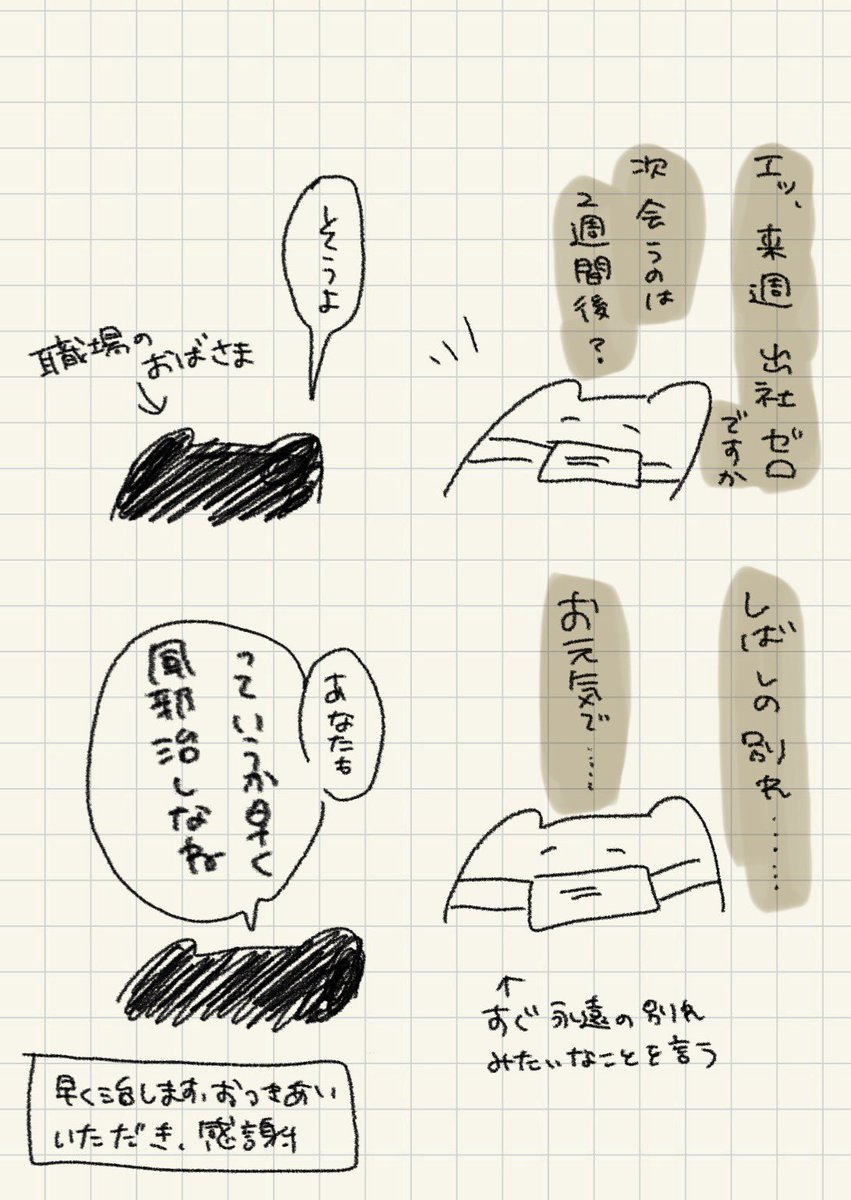 エッ、来週 出社ゼロ
ですか
次 会うのは
2週間後?
そうよ
職場のおばさま
しばしの別れ………
お元気で……
すぐ永遠の別れ
みたいなことを言う
あなたも
っていうか早く
風邪治しなね
早く治します、おつきあい
いただき、感謝